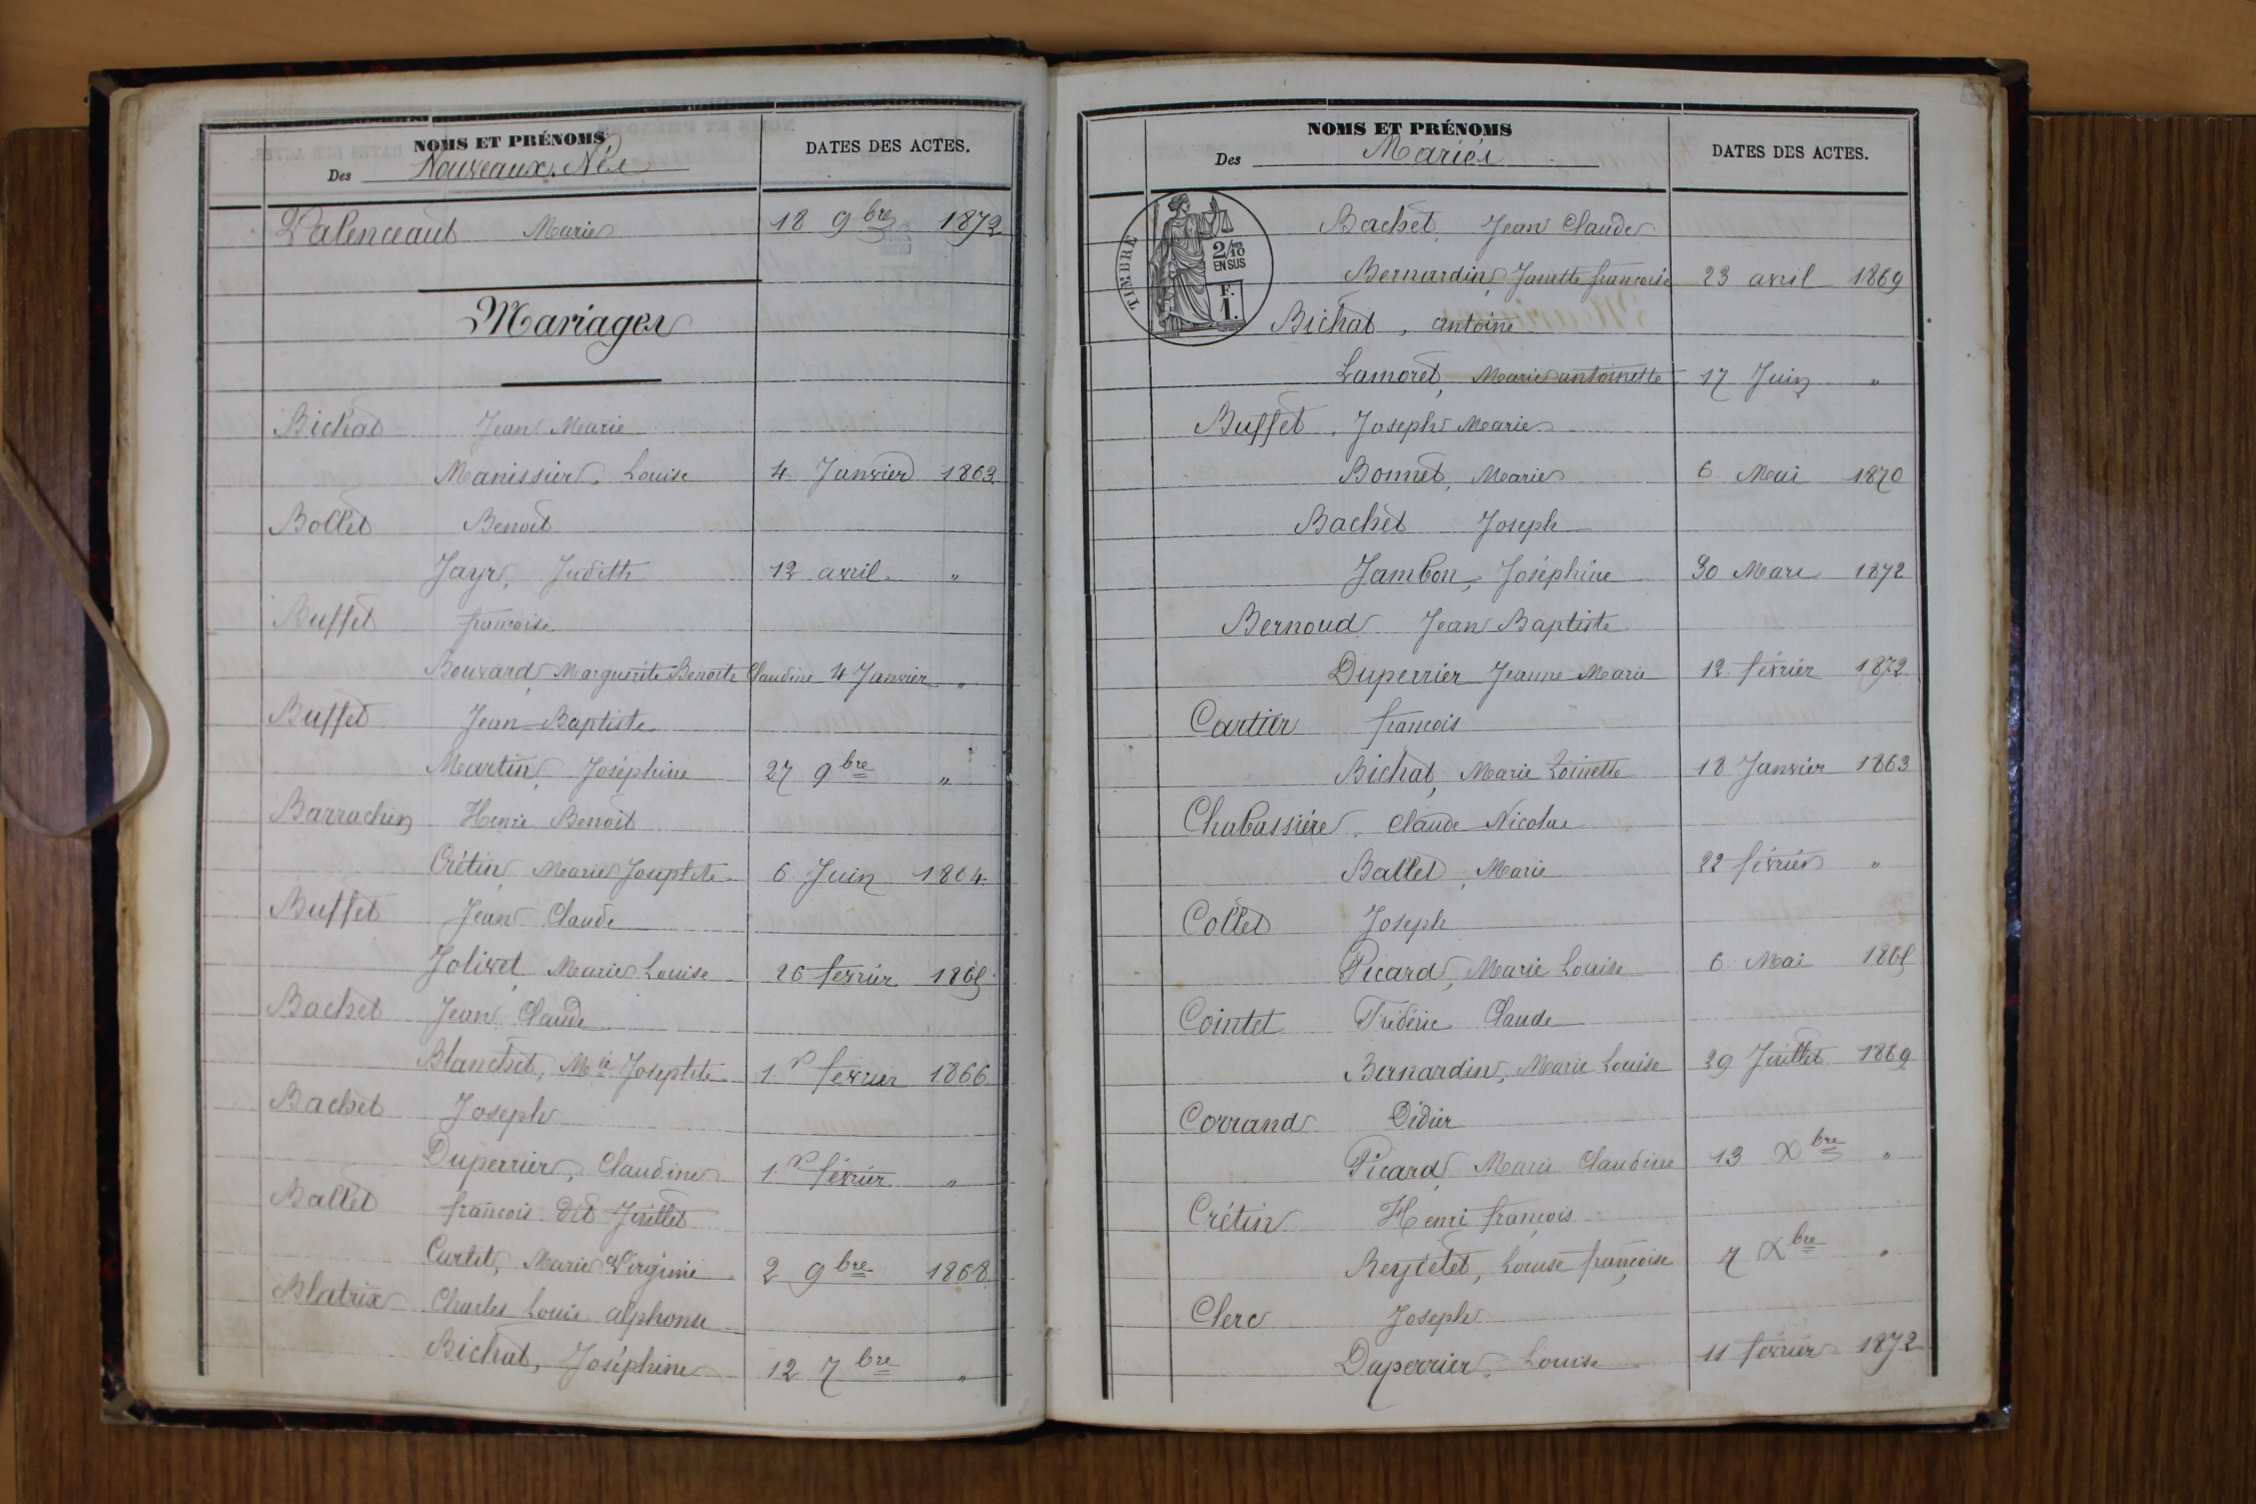 NOMS ET PRÉNOMS
Des Nouveaux-Nés
DATES DES ACTES.
Valenceaut Marie 18 9bre 1872
Mariages
Bichat Jean Marie
Manissier, Louise 4 Janvier 1863
Bollet Benoit
Jayr, Judith 12 avril "
Buffet françoise
Bouvard, Marguerite Benoite Claudine 4 Janvier "
Buffet Jean Baptiste
Martin, Joséphine 27 9bre "
Barrachin Henri Benoit
Crétin, Marie Josephte 6 Juin 1864
Buffet Jean Claude
Jolivet, Marie Louise 26 fevrier 1865
Bachet Jean Claude
Blanchet, Mie Josephte 1.r fevrier 1866
Bachet Joseph
Duperrier, Claudine 1.r février "
Ballet françois dit Juillet
Curtet, Marie Virginie 2 9bre 1868
Blatrix Charles Louis alphonse
Bichat, Joséphine 12 7bre "
NOMS ET PRÉNOMS
Des Mariés
DATES DES ACTES.
TIMBRE
2/10
EN SUS
F.
1.
Bachet Jean Claude
Bernardin, Josette françoise 23 avril 1869
Bichat, antoine
Lamoret, Marie antoinette 17 Juin "
Buffet, Joseph Marie
Bonnet, Marie 6 Mai 1870
Bachet Joseph
Jambon, Joséphine 30 Mars 1872
Bernoud Jean Baptiste
Duperrier Jeanne Marie 12 février 1872
Cartier françois
Bichat, Marie Toinette 18 Janvier 1863
Chabassière, Claude Nicolas
Ballet, Marie 22 février "
Collet Joseph
Picard, Marie Louise 6 Mai 1865
Cointet Frédéric Claude
Bernardin, Marie Louise 29 Juillet 1869
Corrand Didier
Picard, Marie Claudine 13 Xbre "
Crétin Henri françois
Reytetet, Louise françoise 7 Xbre "
Clerc Joseph
Duperrier, Louise 11 février 1872